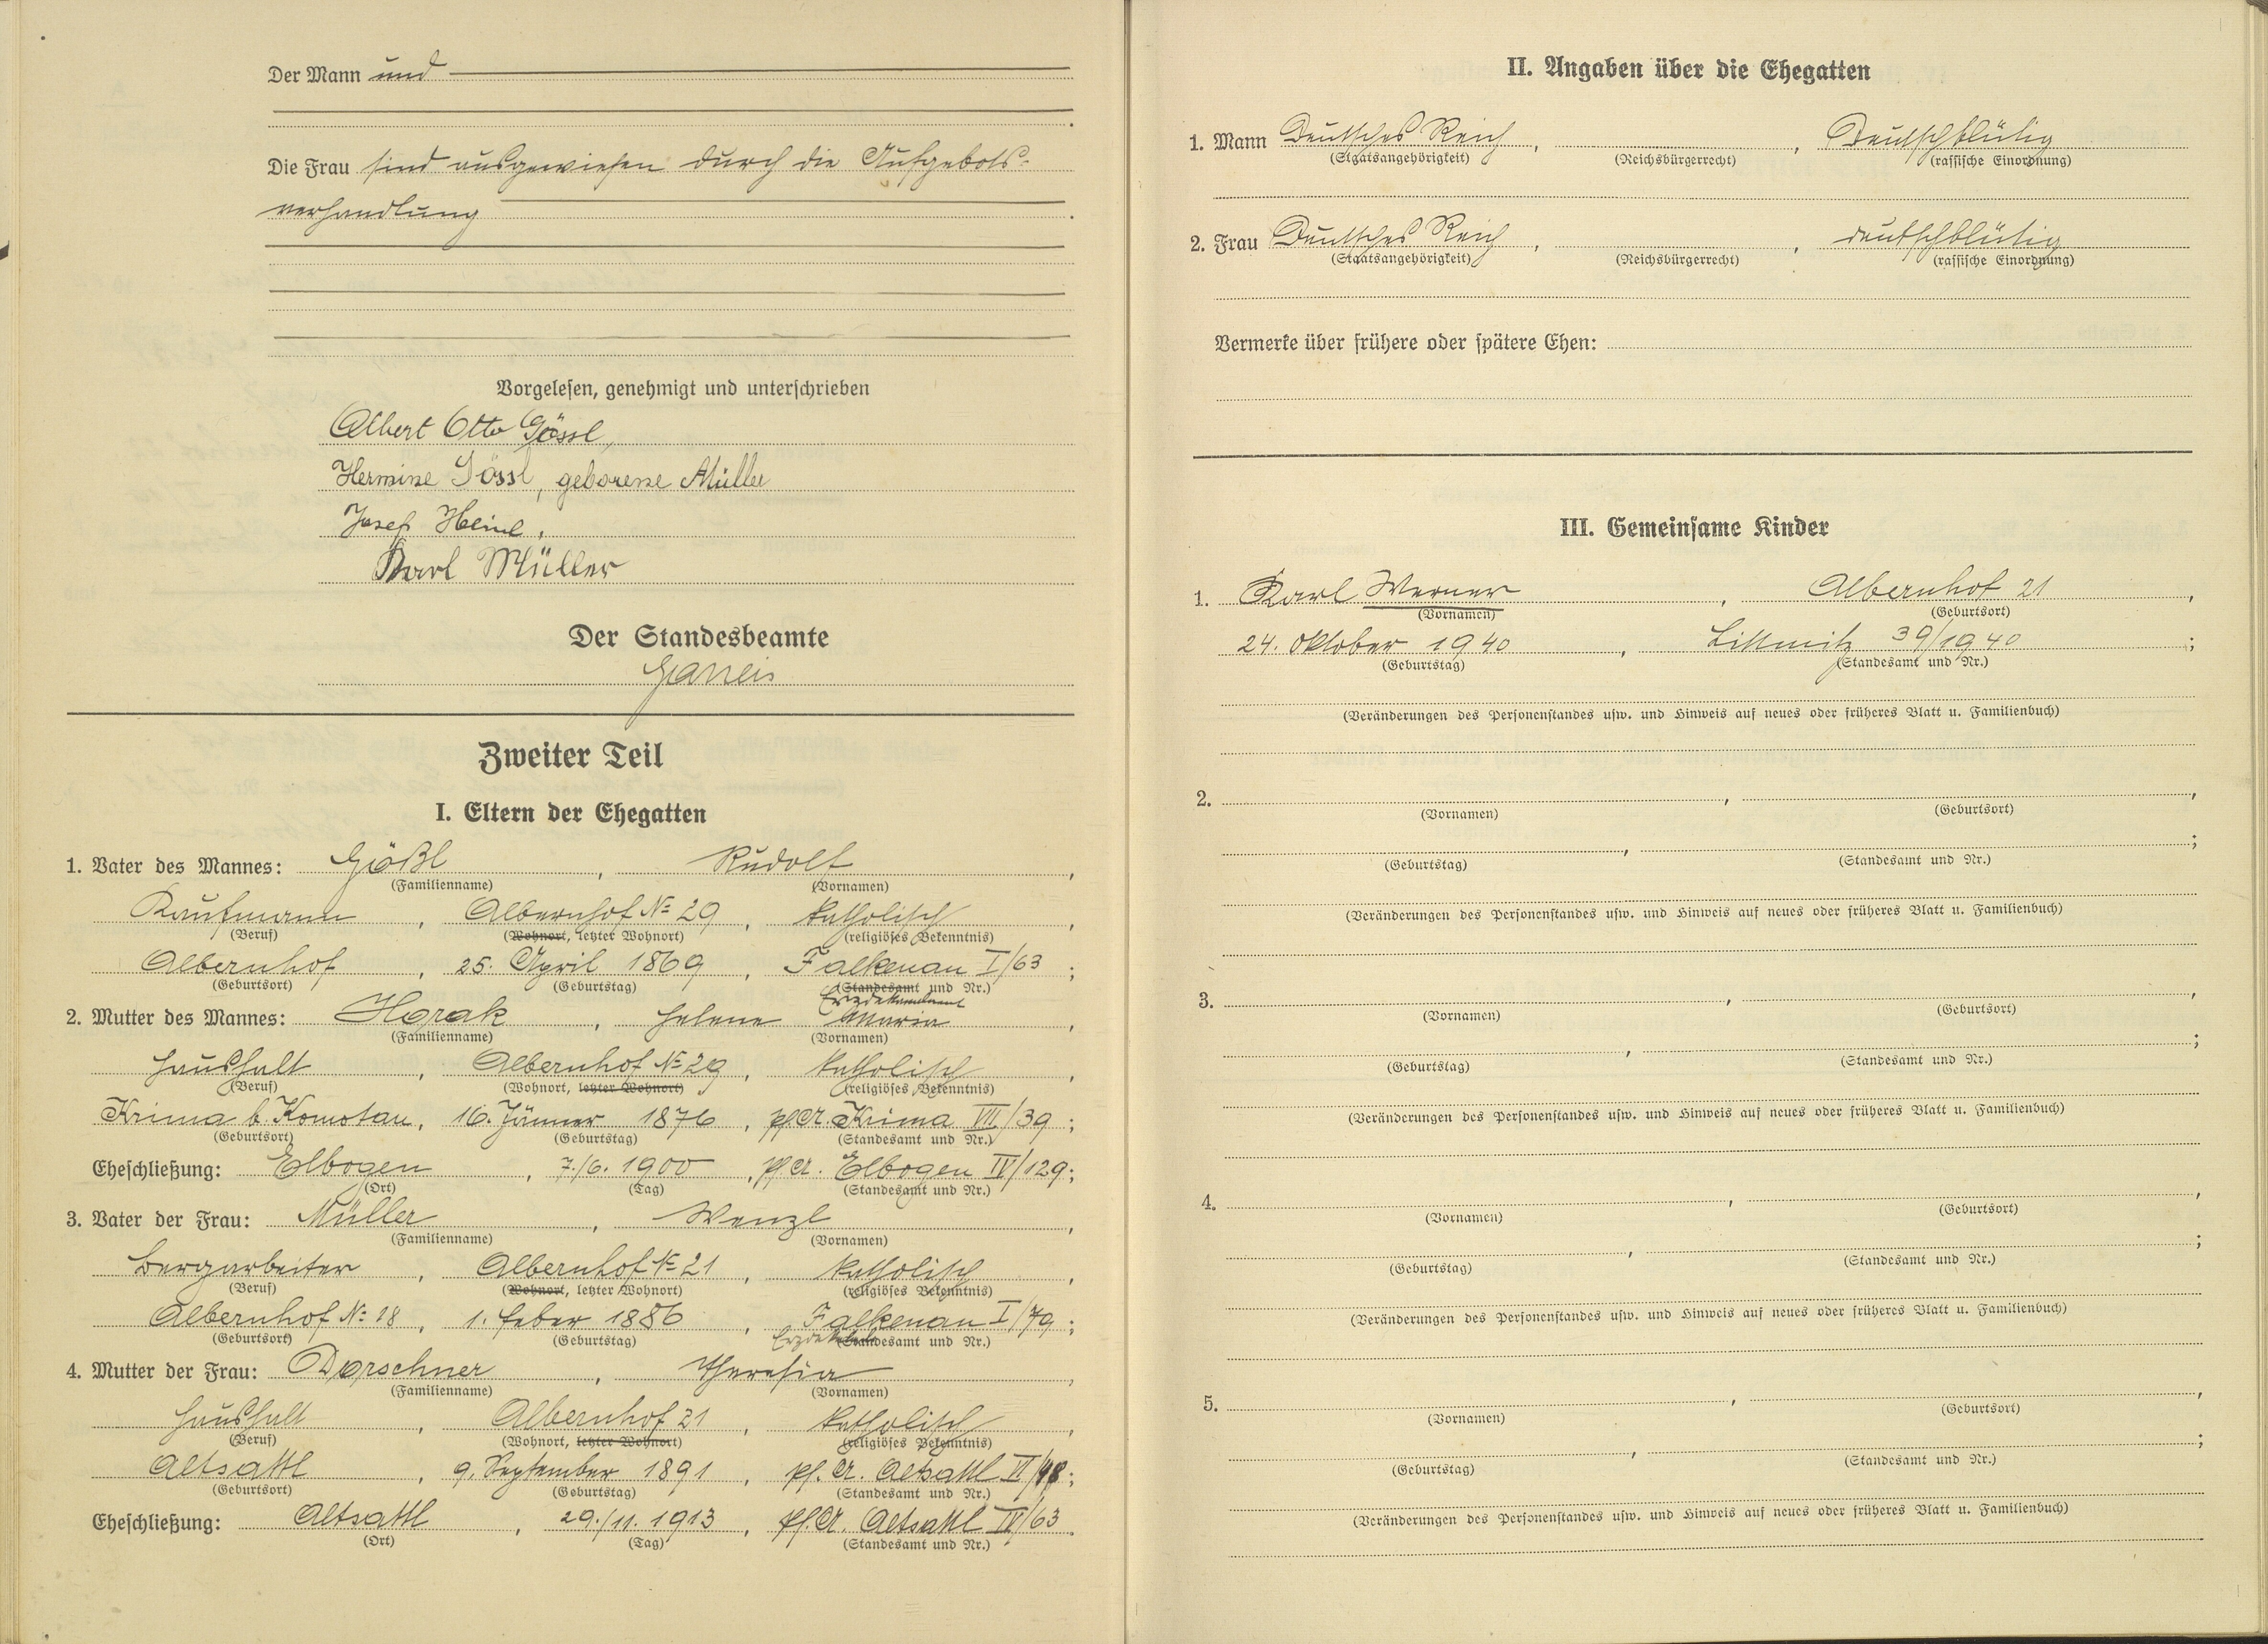 Der Mann und
Die Frau sind ausgewiesen durch die Aufgebots-
verhandlung .
Vorgelesen, genehmigt und unterschrieben
Albert Otto Gössl,
Hermine Gössl, geborene Müller
Josef Heinl,
Karl Müller
Der Standesbeamte
Garreis
Zweiter Teil
I. Eltern der Ehegatten
1. Vater des Mannes: Gößl , Rudolf ,
(Familienname) (Vornamen)
Kaufmann , Albernhof No 29 , katholisch ,
(Beruf) (Wohnort, letzter Wohnort) (religiöses Bekenntnis)
Albernhof , 25. April 1869 , Falkenau I/63 ;
(Geburtsort) (Geburtstag) (Standesamt und Nr.)
Erzdekanalamt
2. Mutter des Mannes: Horak , Helene Maria ,
(Familienname) (Vornamen)
Haushalt , Albernhof No 29 , katholisch ,
(Beruf) (Wohnort, letzter Wohnort) (religiöses Bekenntnis)
Krima b. Komotau , 16. Jänner 1876 , Pf.A. Krima VII/39 ;
(Geburtsort) (Geburtstag) (Standesamt und Nr.)
Eheschließung: Elbogen , 7./6. 1900 , Pf.A. Elbogen IV/129 ;
(Ort) (Tag) (Standesamt und Nr.)
3. Vater der Frau: Müller , Wenzl ,
(Familienname) (Vornamen)
Bergarbeiter , Albernhof No 21 , katholisch ,
(Beruf) (Wohnort, letzter Wohnort) (religiöses Bekenntnis)
Albernhof No 28 , 1. Feber 1886 , Falkenau I/79 ;
(Geburtsort) (Geburtstag) (Standesamt und Nr.)
4. Mutter der Frau: Dorschner , Theresia ,
(Familienname) (Vornamen)
Haushalt , Albernhof 21 , katholisch ,
(Beruf) (Wohnort, letzter Wohnort) (religiöses Bekenntnis)
Altsattl , 9. September 1891 , Pf. A. Altsattl VI/48 ;
(Geburtsort) (Geburtstag) (Standesamt und Nr.)
Eheschließung: Altsattl , 29./11. 1913 , Pf.A. Altsattl IV/63 .
(Ort) (Tag) (Standesamt und Nr.)
II. Angaben über die Ehegatten
1. Mann Deutsches Reich , , Deutschblütig
(Staatsangehörigkeit) (Reichsbürgerrecht) (rassische Einordnung)
2. Frau Deutsches Reich , , deutschblütig
(Staatsangehörigkeit) (Reichsbürgerrecht) (rassische Einordnung)
Vermerke über frühere oder spätere Ehen:
III. Gemeinsame Kinder
1. Karl Werner , Albernhof 21 ,
(Vornamen) (Geburtsort)
24. Oktober 1940 , Littmitz 39/1940 ;
(Geburtstag) (Standesamt und Nr.)
(Veränderungen des Personenstandes usw. und Hinweis auf neues oder früheres Blatt u. Familienbuch)
2. , ,
(Vornamen) (Geburtsort)
, ;
(Geburtstag) (Standesamt und Nr.)
(Veränderungen des Personenstandes usw. und Hinweis auf neues oder früheres Blatt u. Familienbuch)
3. , ,
(Vornamen) (Geburtsort)
, ;
(Geburtstag) (Standesamt und Nr.)
(Veränderungen des Personenstandes usw. und Hinweis auf neues oder früheres Blatt u. Familienbuch)
4. , ,
(Vornamen) (Geburtsort)
, ;
(Geburtstag) (Standesamt und Nr.)
(Veränderungen des Personenstandes usw. und Hinweis auf neues oder früheres Blatt u. Familienbuch)
5. , ,
(Vornamen) (Geburtsort)
, ;
(Geburtstag) (Standesamt und Nr.)
(Veränderungen des Personenstandes usw. und Hinweis auf neues oder früheres Blatt u. Familienbuch)